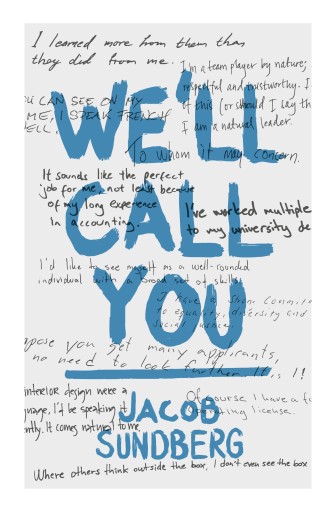 I learned more from them than
they did from me.
I'm a team player by nature;
respectful and trustworthy. I
of this (or should I say th
I am a natural leader.
CAN SEE ON MY
ME, I SPEAK FRENCH
ELL.
WE'LL
To whom it may concern.
It sounds like the perfect
job for me, not least because
of my long experience
In accounting.
I've worked multiple
to my university de
CALL
I'd like to see myself as a well-rounded
individual with a broad set of skills.
I have a
to equality, diversity and
social
YOU
you get many applicants,
no need to look further. It is !!
interior design were a
I'd be speaking it
ntly. It comes natural to me.
Of course I have a fu
license.
JACOB
SUNDBERG
Where others think outside the box, I don't even see the box